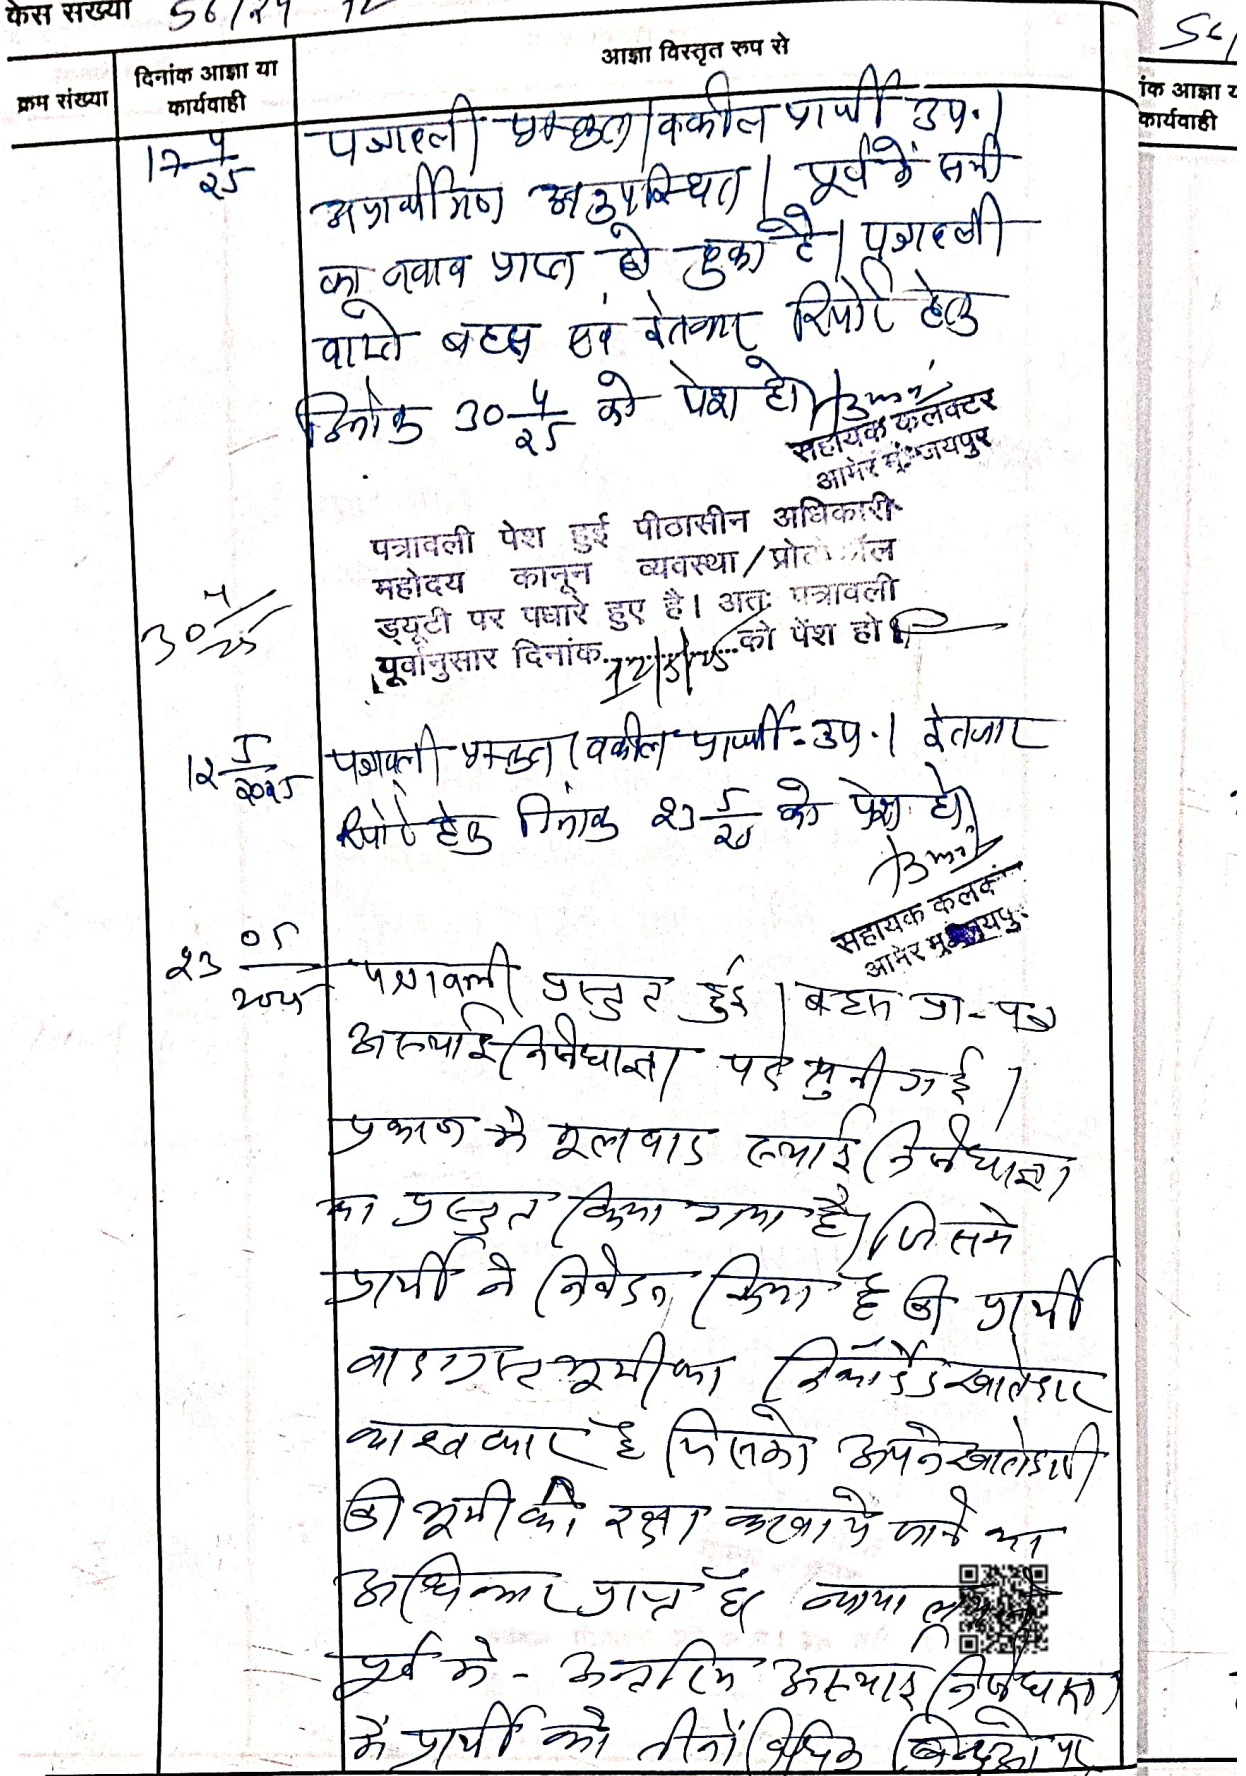 केस संख्या 56/24
क्रम संख्या
दिनांक आज्ञा या
कार्यवाही
आज्ञा विस्तृत रूप से
17 4/25
पत्रावली प्रस्तुत। वकील प्रार्थी उप.।
अप्रार्थीगण अनुपस्थित। पूर्व में सभी
का जवाब प्राप्त हो चुका है। पत्रावली
वास्ते बहस एवं इंतजार रिपोर्ट हेतु
दिनांक 30 4/25 को पेश हो।
सहायक कलक्टर
आमेर मु. जयपुर
30 4/25
पत्रावली पेश हुई पीठासीन अधिकारी
महोदय कानून व्यवस्था/प्रोटोकॉल
ड्यूटी पर पधारे हुए है। अतः पत्रावली
पूर्वानुसार दिनांक 12/5/25 को पेश हो।
12 5/2025
पत्रावली प्रस्तुत। वकील प्रार्थी उप.। इंतजार
रिपोर्ट हेतु दिनांक 23 5/25 को पेश हो।
सहायक कलक्टर
आमेर मु. जयपुर
23 05/2025
पत्रावली प्रस्तुत हुई। बहस प्रा-पत्र
अस्थाई निषेधाज्ञा पर सुनी गई।
प्रकरण में मूलवाद स्थाई निषेधाज्ञा
का प्रस्तुत किया गया है। जिसमें
प्रार्थी ने निवेदन किया है की प्रार्थी
वादग्रस्त भूमी का रिकॉर्डेड खातेदार
काश्तकार है जिसको अपने खातेदारी
की भूमी की रक्षा करवाये जाने का
अधिकार प्राप्त है।
पूर्व में - अन्तरिम अस्थाई निषेधाज्ञा
में प्रार्थी को तीनों विधिक बिन्दुओ पर
56/
ांक आज्ञा य
कार्यवाही